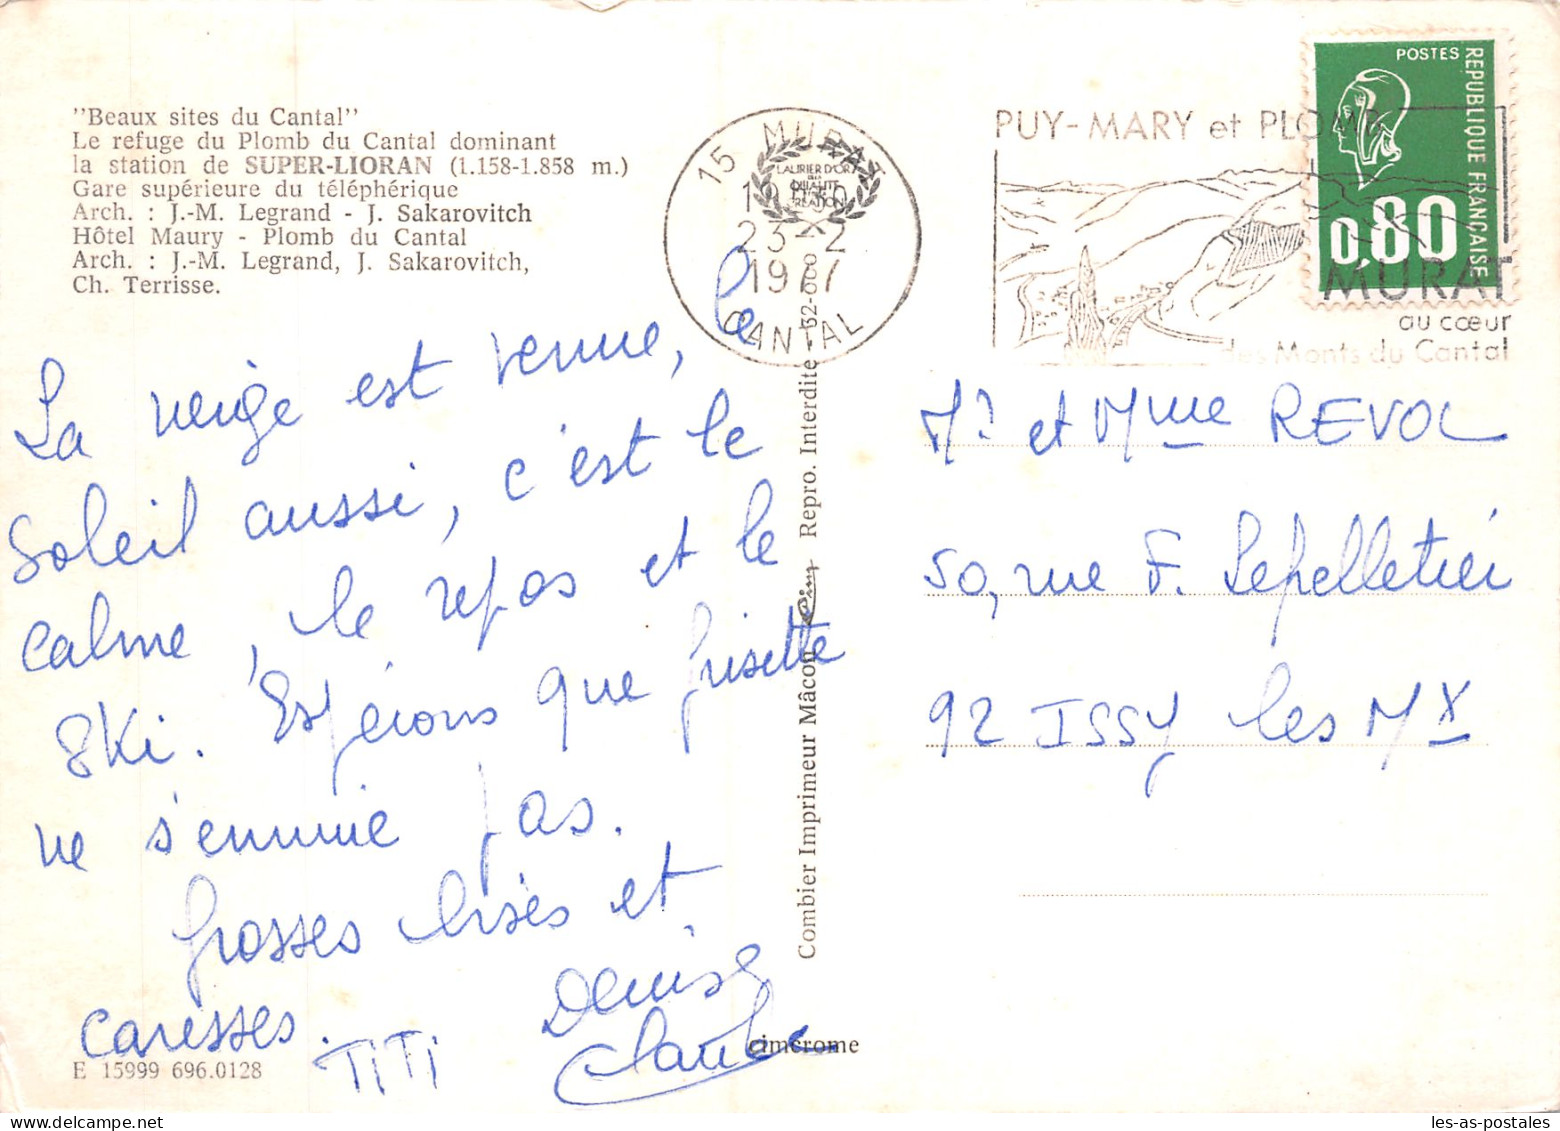 "Beaux sites du Cantal"
Le refuge du Plomb du Cantal dominant
la station de SUPER-LIORAN (1.158-1.858 m.)
Gare supérieure du téléphérique
Arch. : J.-M. Legrand - J. Sakarovitch
Hôtel Maury - Plomb du Cantal
Arch. : J.-M. Legrand, J. Sakarovitch,
Ch. Terrisse.
La neige est venue, le
soleil aussi, c'est le
calme, le repos et le
ski. Espérons que Frisette
ne s'ennuie pas.
Grosses bises et
caresses.
TITI
Denise
Claude
E 15999 696.0128
cimcrome
Combier Imprimeur Mâcon Cim Repro. Interdite
15 MURAT
23-2
1977
CANTAL
LAURIER D'OR
DE LA
QUALITÉ
CRÉATION
PUY-MARY et PLOMB
MURAT
au cœur
des Monts du Cantal
POSTES
REPUBLIQUE FRANÇAISE
0,80
Mr et Mme REVOL
50, rue F. Lepelletier
92 ISSY les MX
les-as-postales